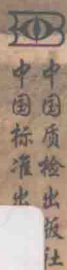 中国质检出版社
中国标准出